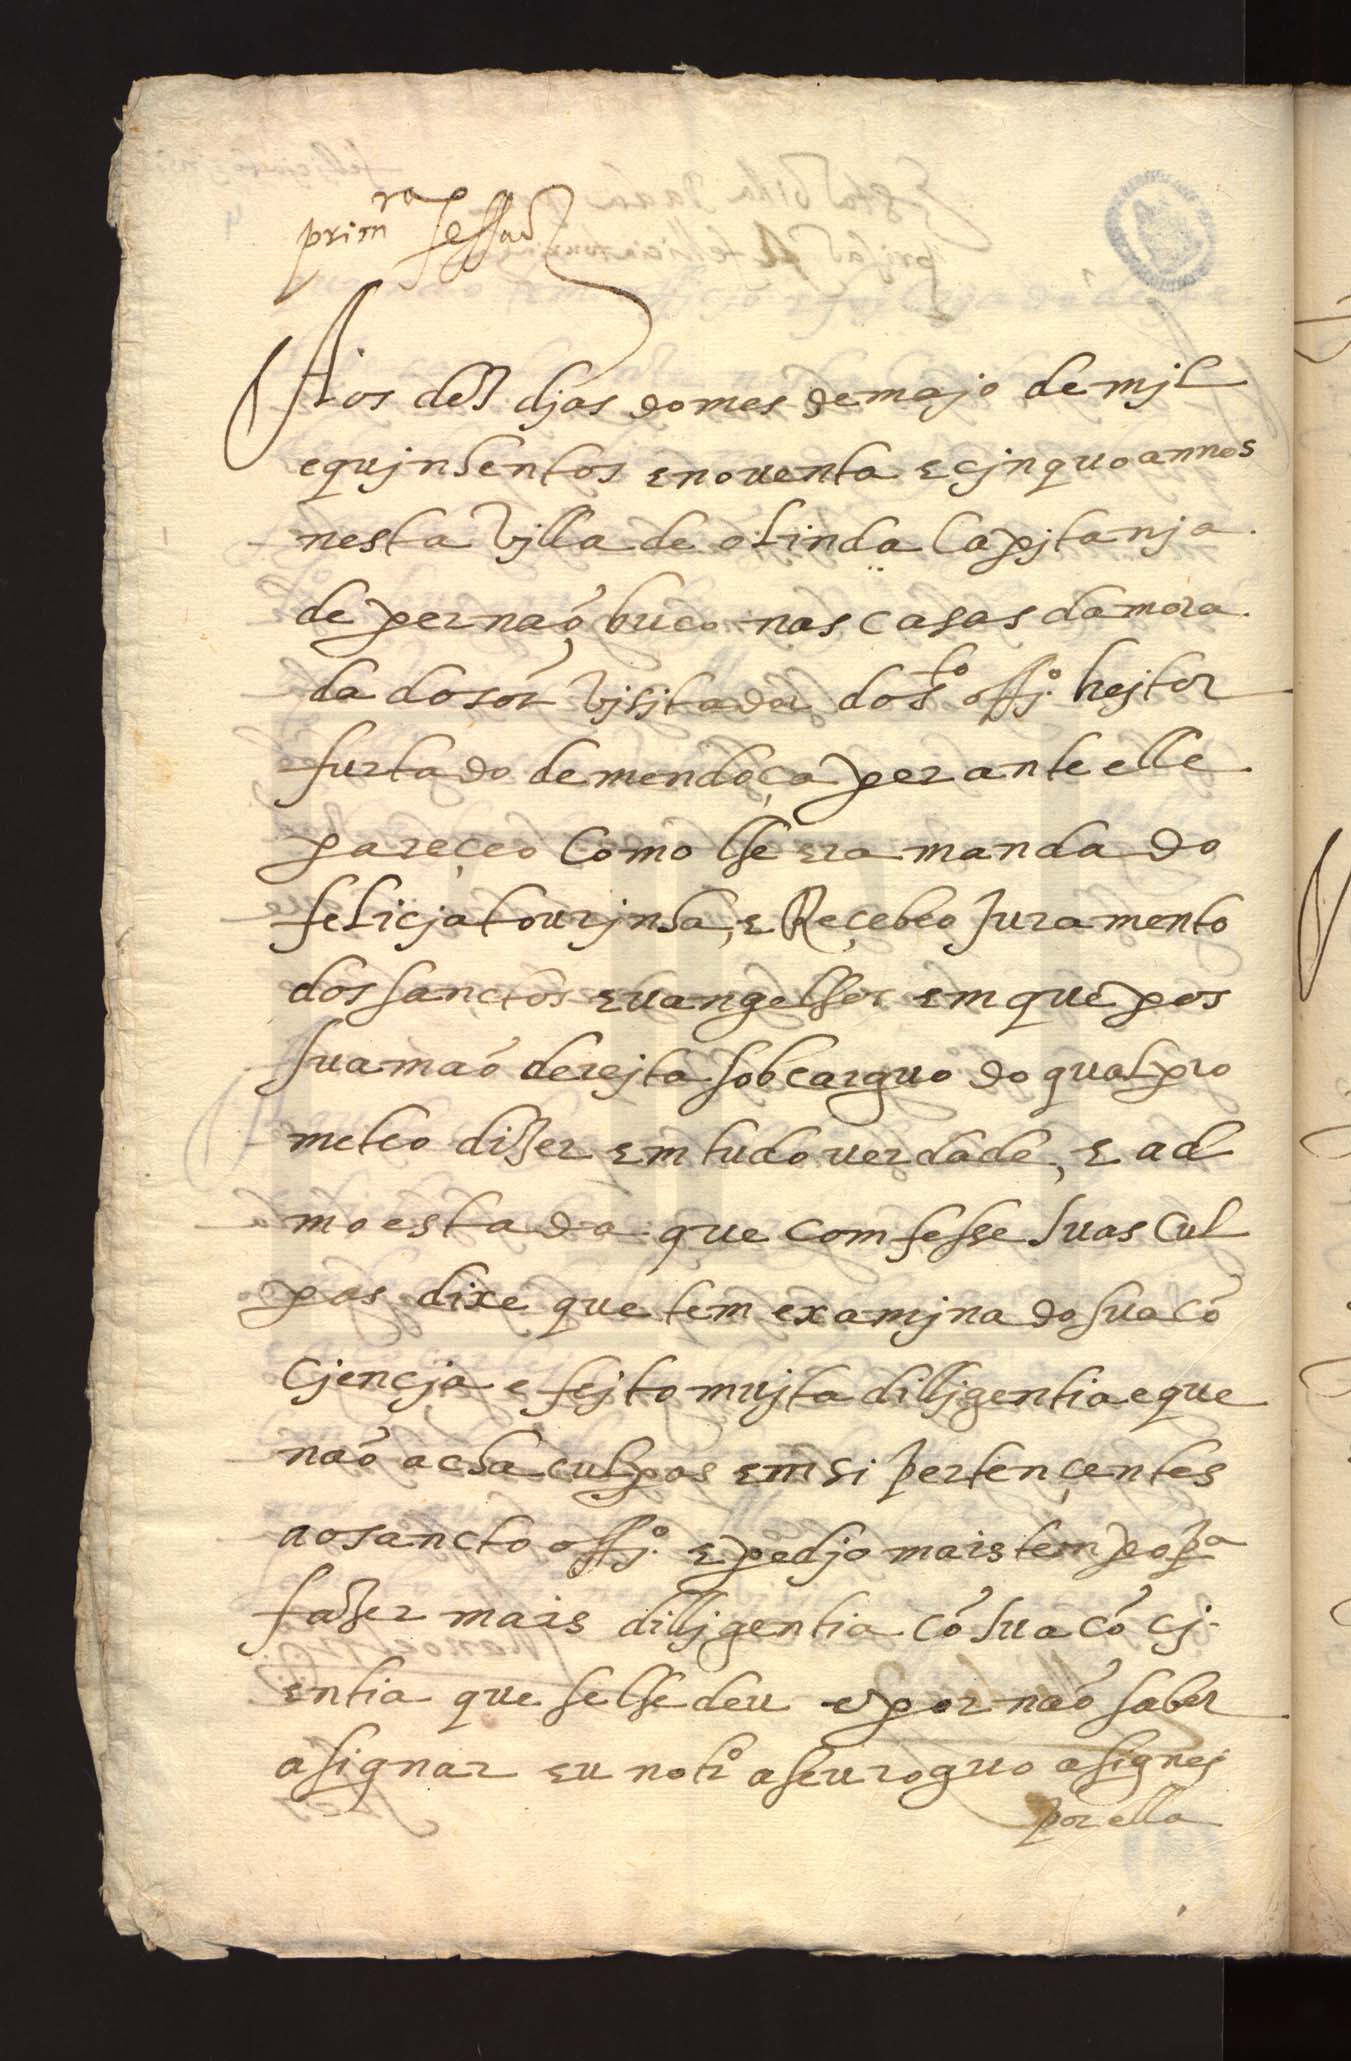 prim.ra sessaõ
Aos des djas do mes de majo de mjl
e qujnhentos e noventa e cjnquo annos
nesta vjlla de olinda capjtanja
de pernaõbuco nas casas da mora
da do sor vjsjtador do s.to offj.º hejtor
furtado de mendoça perante elle
pareçeo como lhe era mandado
felicja tourjnha, e Reçebeo Juramento
dos sanctos evangelhos em que pos
sua maõ derejta sob carguo do qual pro
meteo dizer em tudo verdade, e ad
moestada que comfesse suas cul
pas dixe que tem examjnado sua cõ
cjencja e fejto mujta dilljgentia e que
naõ acha culpas em si pertençentes
ao sancto offj.º e pedjo mais tempo p.a
fazer mais dilljgentia cõ sua cõ cj
entia que se lhe deu e por naõ saber
asignar eu not.rº a seu roguo asignej
por ella